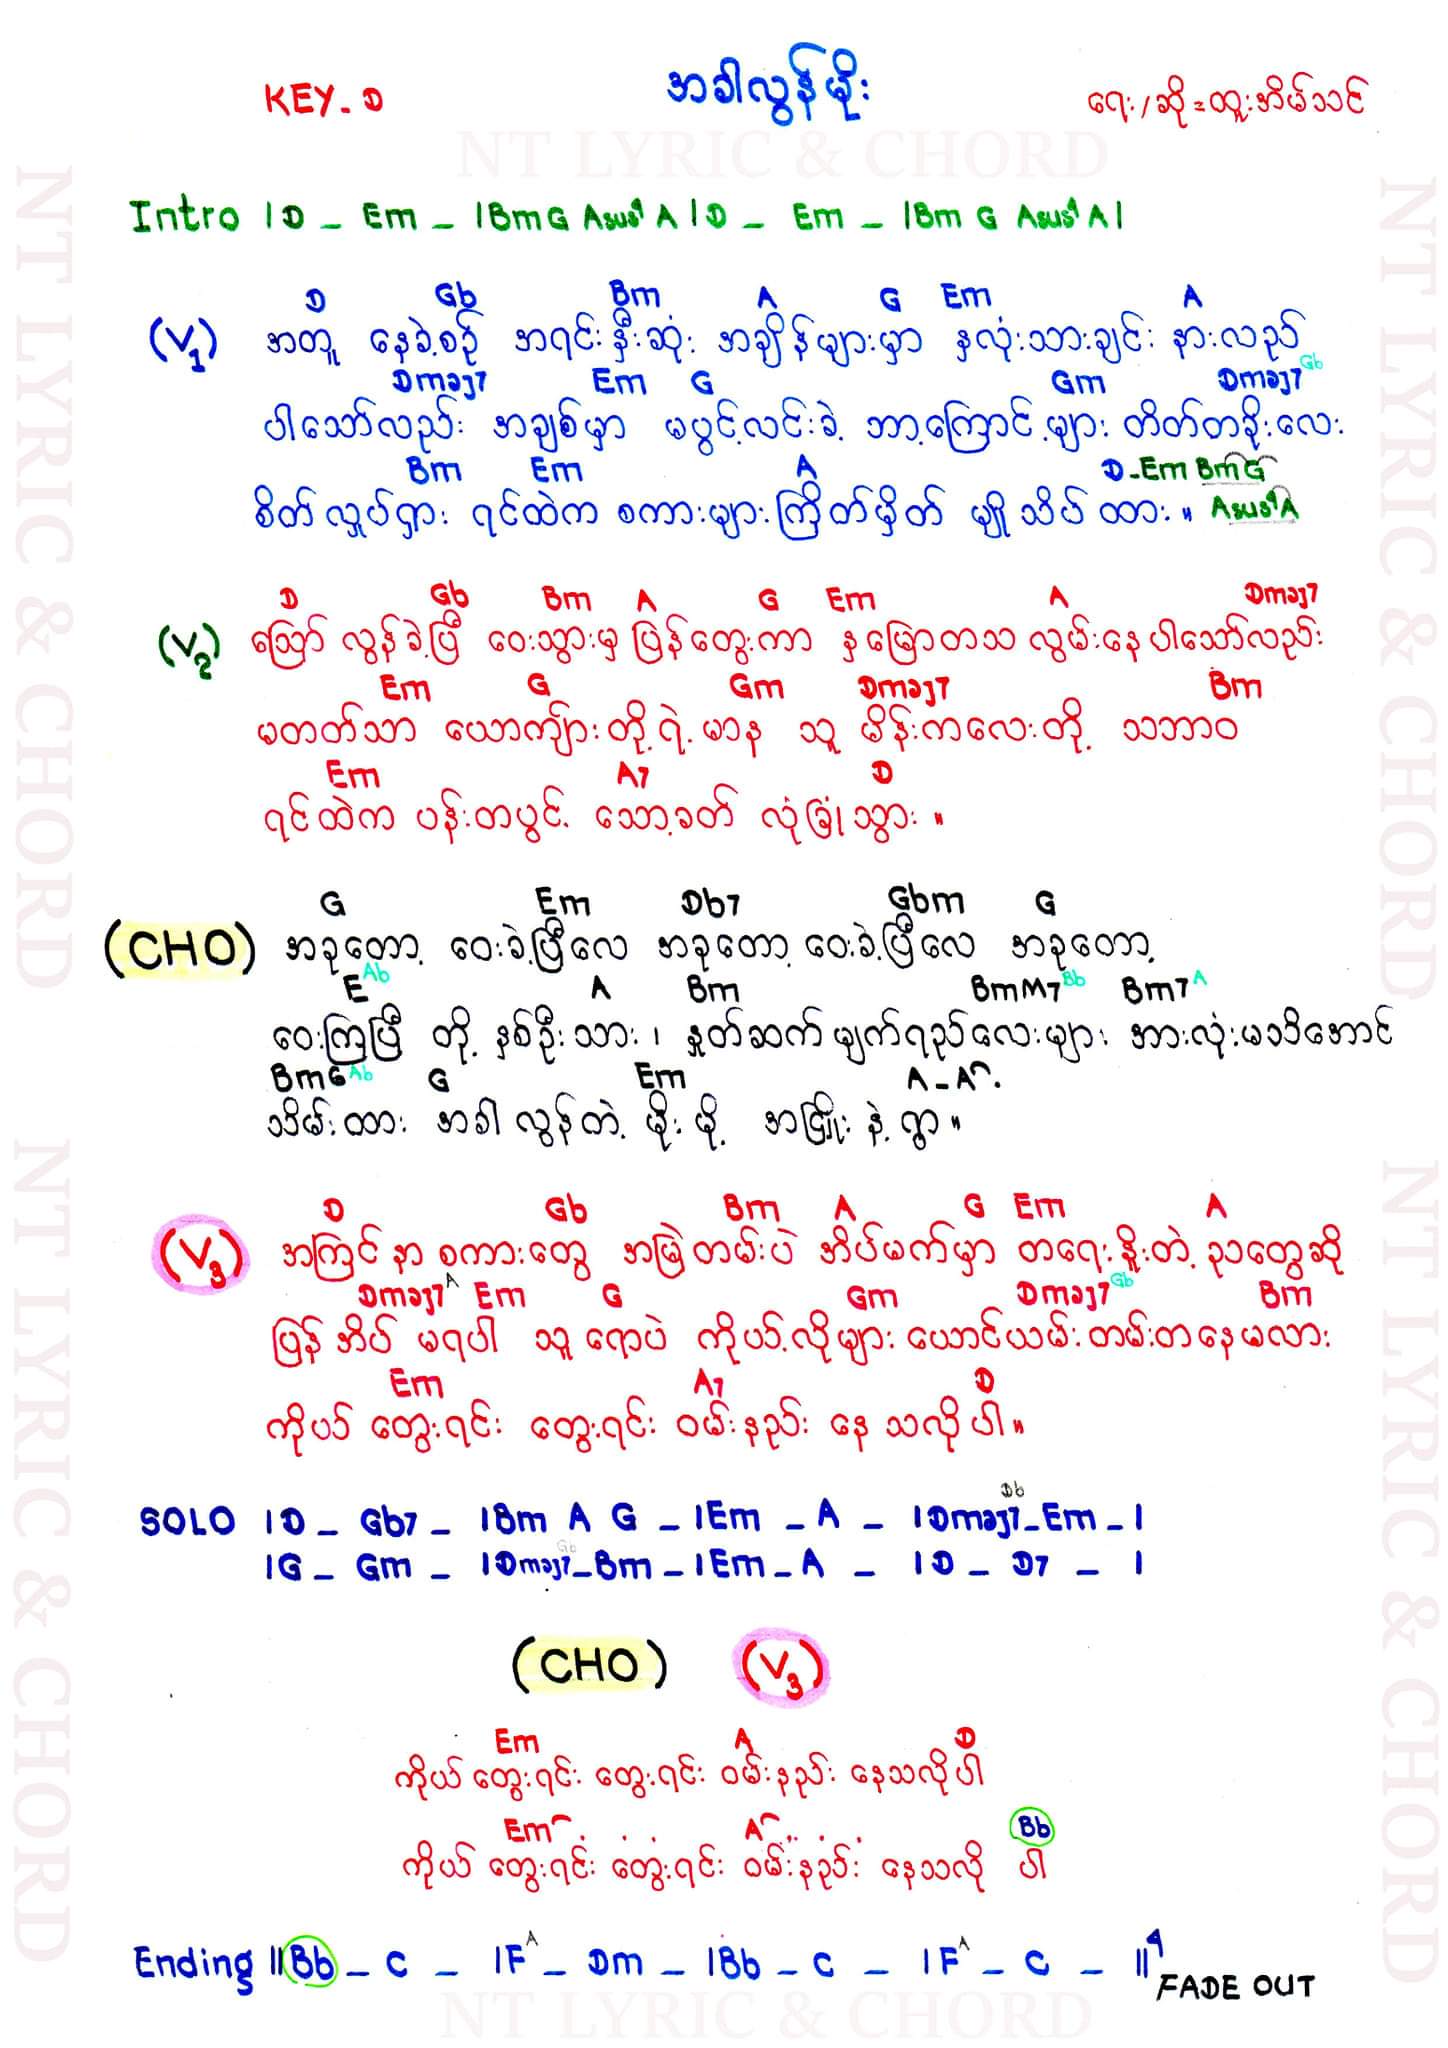 KEY - D
အခါလွန်မိုး
ရေး/ဆို = ထူးအိမ်သင်
NT LYRIC & CHORD
Intro | D - Em - | Bm G Asus4 A | D - Em - | Bm G Asus4 A |
D Gb Bm A G Em A
(V1) အတူ နေခဲ့စဉ် အရင်းနှီးဆုံး အချိန်များမှာ နှလုံးသားချင်း နားလည်
Dmaj7 Em G Gm Dmaj7 Gb
ပါသော်လည်း အချစ်မှာ မပွင့်လင်းခဲ့ ဘာ့ကြောင့်များ တိတ်တခိုးလေး
Bm Em A D-Em Bm G
စိတ်လှုပ်ရှား ရင်ထဲက စကားများကြိတ်မှိတ် မျိုသိပ် ထား ။ Asus4 A
D Gb Bm A G Em A Dmaj7
(V2) သြော် လွန်ခဲ့ပြီ ဝေးသွားမှ ပြန်တွေးကာ နှမြောတသ လွမ်းနေပါသော်လည်း
Em G Gm Dmaj7 Bm
မတတ်သာ ယောကျ်ားတို့ရဲ့မာန သူ မိန်းကလေးတို့ သဘာဝ
Em A7 D
ရင်ထဲက ပန်းတပွင့် သော့ခတ် လုံခြုံသွား ။
G Em Db7 Gbm G
(CHO) အခုတော့ ဝေးခဲ့ပြီလေ အခုတော့ ဝေးခဲ့ပြီလေ အခုတော့
E Ab A Bm BmM7 Bb Bm7 A
ဝေးကြပြီ တို့ နှစ်ဦးသား ၊ နှုတ်ဆက်မျက်ရည်လေးများ အားလုံးမသိအောင်
Bm6 Ab G Em A - A
သိမ်းထား အခါလွန်တဲ့ မိုးမို့ အငြိုးနဲ့ ရွာ ။
D Gb Bm A G Em A
(V3) အကြင်နာ စကားတွေ အမြဲတမ်းပဲ အိပ်မက်မှာ တရေးနိုးတဲ့ ညတွေဆို
Dmaj7 A Em G Gm Dmaj7 Gb Bm
ပြန်အိပ် မရပါ သူရောပဲ ကိုယ့်လိုများ ယောင်ယမ်းတမ်းတနေမလား
Em A7 D
ကိုယ် တွေးရင်း တွေးရင်း ဝမ်းနည်း နေ သလိုပါ ။
SOLO | D - Gb7 - | Bm A G - | Em - A - | Dmaj7 Db - Em - |
| G - Gm - | Dmaj7 Gb - Bm - | Em - A - | D - D7 - |
(CHO) (V3)
Em A D
ကိုယ် တွေးရင်း တွေးရင်း ဝမ်းနည်း နေသလိုပါ
Em A Bb
ကိုယ် တွေးရင်း တွေးရင်း ဝမ်းနည်း နေသလို ပါ
Ending || Bb - C - | F A - Dm - | Bb - C - | F A - C - || 4
FADE OUT
NT LYRIC & CHORD
NT LYRIC & CHORD
NT LYRIC & CHORD
NT LYRIC & CHORD
NT LYRIC & CHORD